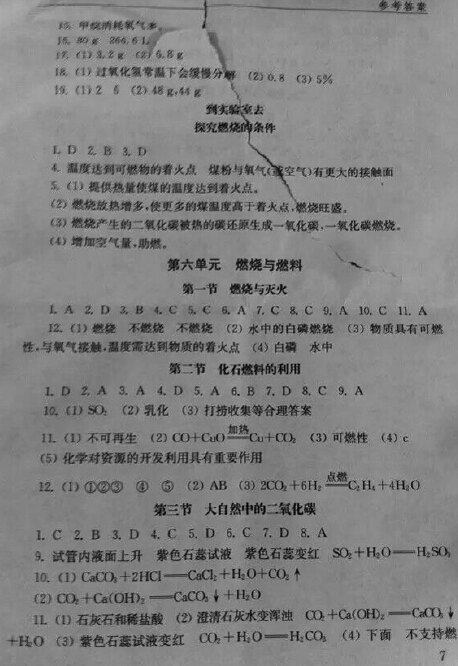 参考答案
15. 甲烷消耗氧气多
16. 80 g 266.6 L
17. (1) 3.2 g (2) 6.8 g
18. (1) 过氧化氢常温下会缓慢分解 (2) 0.8 (3) 5%
19. (1) 2 6 (2) 48 g,44 g
到实验室去
探究燃烧的条件
1. D 2. B 3. D
4. 温度达到可燃物的着火点 煤粉与氧气(或空气)有更大的接触面
5. (1) 提供热量使煤的温度达到着火点。
(2) 燃烧放热增多,使更多的煤温度高于着火点,燃烧旺盛。
(3) 燃烧产生的二氧化碳被热的碳还原生成一氧化碳,一氧化碳燃烧。
(4) 增加空气量,助燃。
第六单元 燃烧与燃料
第一节 燃烧与灭火
1. A 2. D 3. B 4. C 5. C 6. A 7. C 8. C 9. A 10. C 11. A
12. (1) 燃烧 不燃烧 不燃烧 (2) 水中的白磷燃烧 (3) 物质具有可燃
性,与氧气接触,温度需达到物质的着火点 (4) 白磷 水中
第二节 化石燃料的利用
1. D 2. A 3. A 4. D 5. A 6. B 7. D 8. C 9. A
10. (1) SO₂ (2) 乳化 (3) 打捞收集等合理答案
11. (1) 不可再生 (2) CO+CuO 加热══ Cu+CO₂ (3) 可燃性 (4) c
(5) 化学对资源的开发利用具有重要作用
12. (1) ①②③ ④ ⑤ (2) AB (3) 2CO₂+6H₂ 点燃══ C₂H₄+4H₂O
第三节 大自然中的二氧化碳
1. C 2. B 3. D 4. C 5. D 6. C 7. D 8. A
9. 试管内液面上升 紫色石蕊试液 紫色石蕊变红 SO₂+H₂O══H₂SO₃
10. (1) CaCO₃+2HCl══CaCl₂+H₂O+CO₂↑
(2) CO₂+Ca(OH)₂══CaCO₃↓+H₂O
11. (1) 石灰石和稀盐酸 (2) 澄清石灰水变浑浊 CO₂+Ca(OH)₂══CaCO₃↓
+H₂O (3) 紫色石蕊试液变红 CO₂+H₂O══H₂CO₃ (4) 下面 不支持燃
7